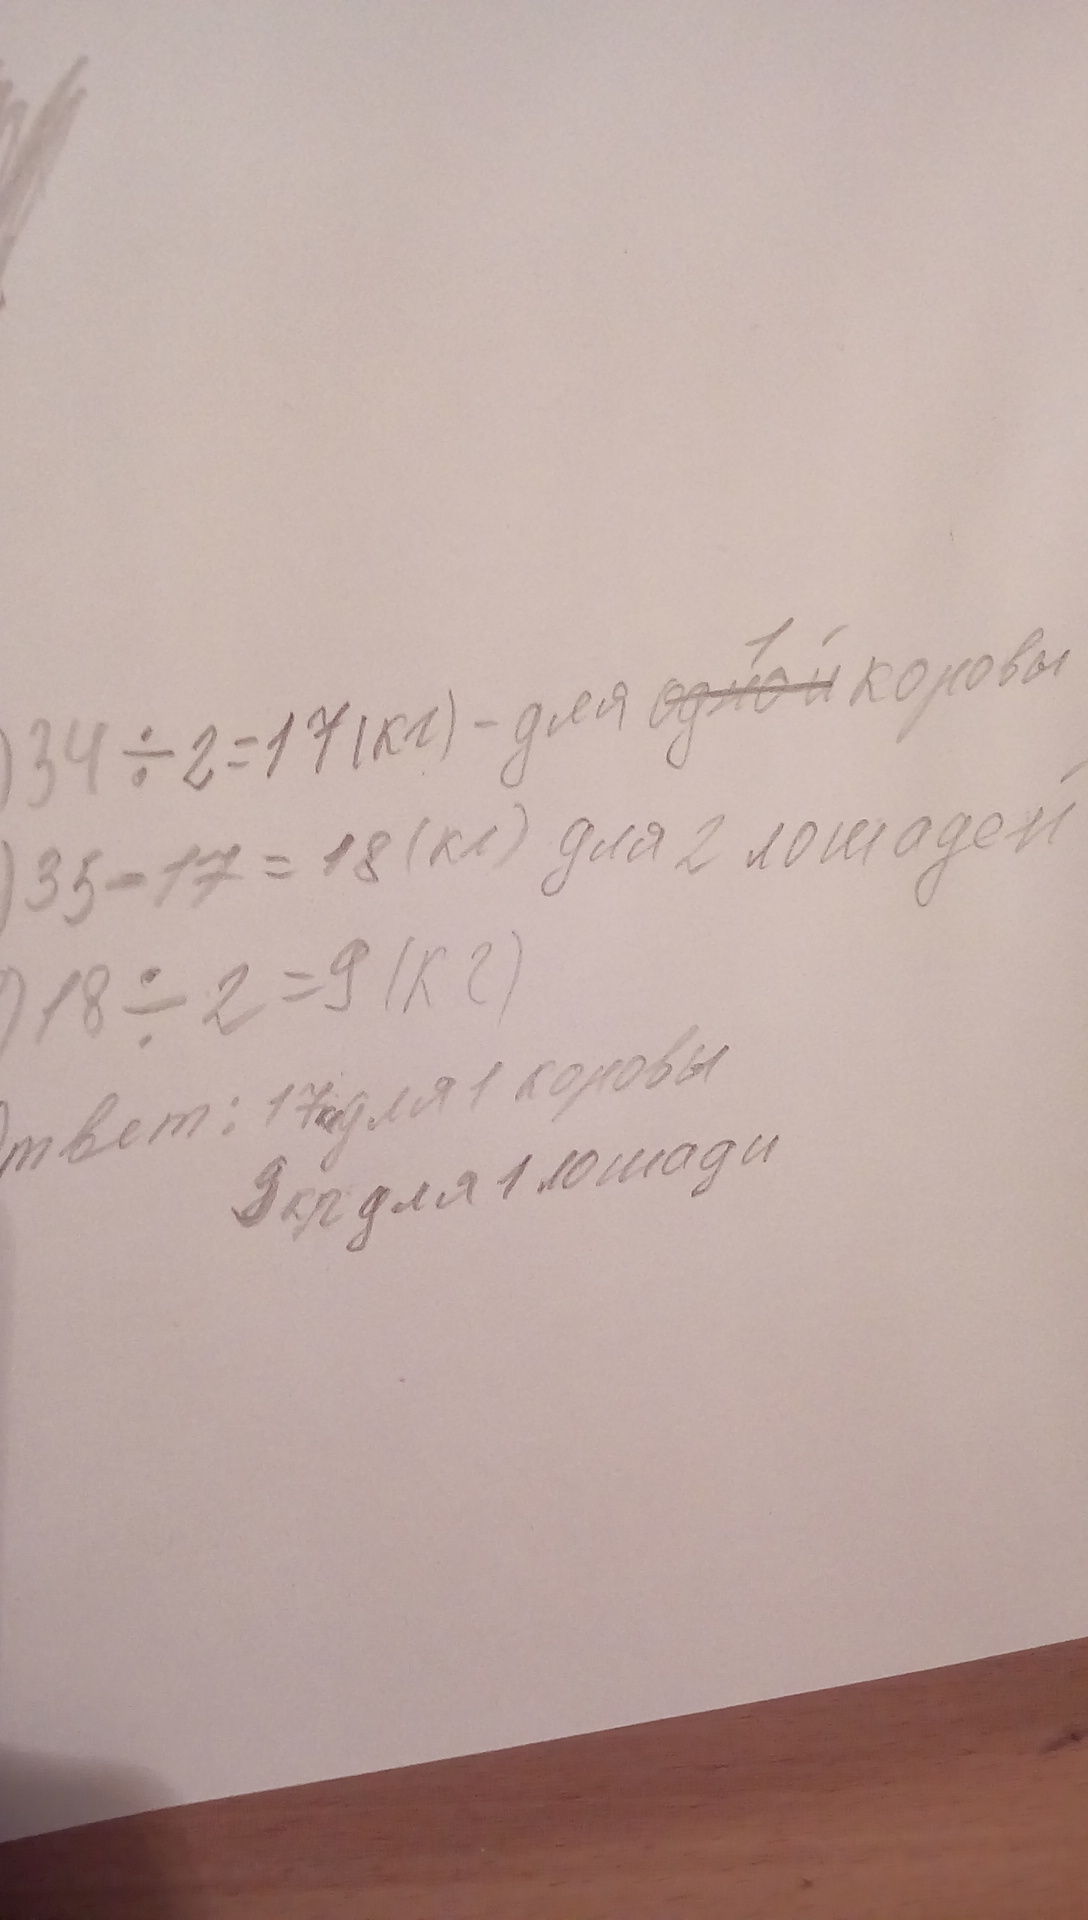 )34÷2=17(кг)-для 1 коровы
)35-17=18(кг) для 2 лошадей
)18÷2=9(кг)
Ответ: 17кг для 1 коровы
9 кг для 1 лошади